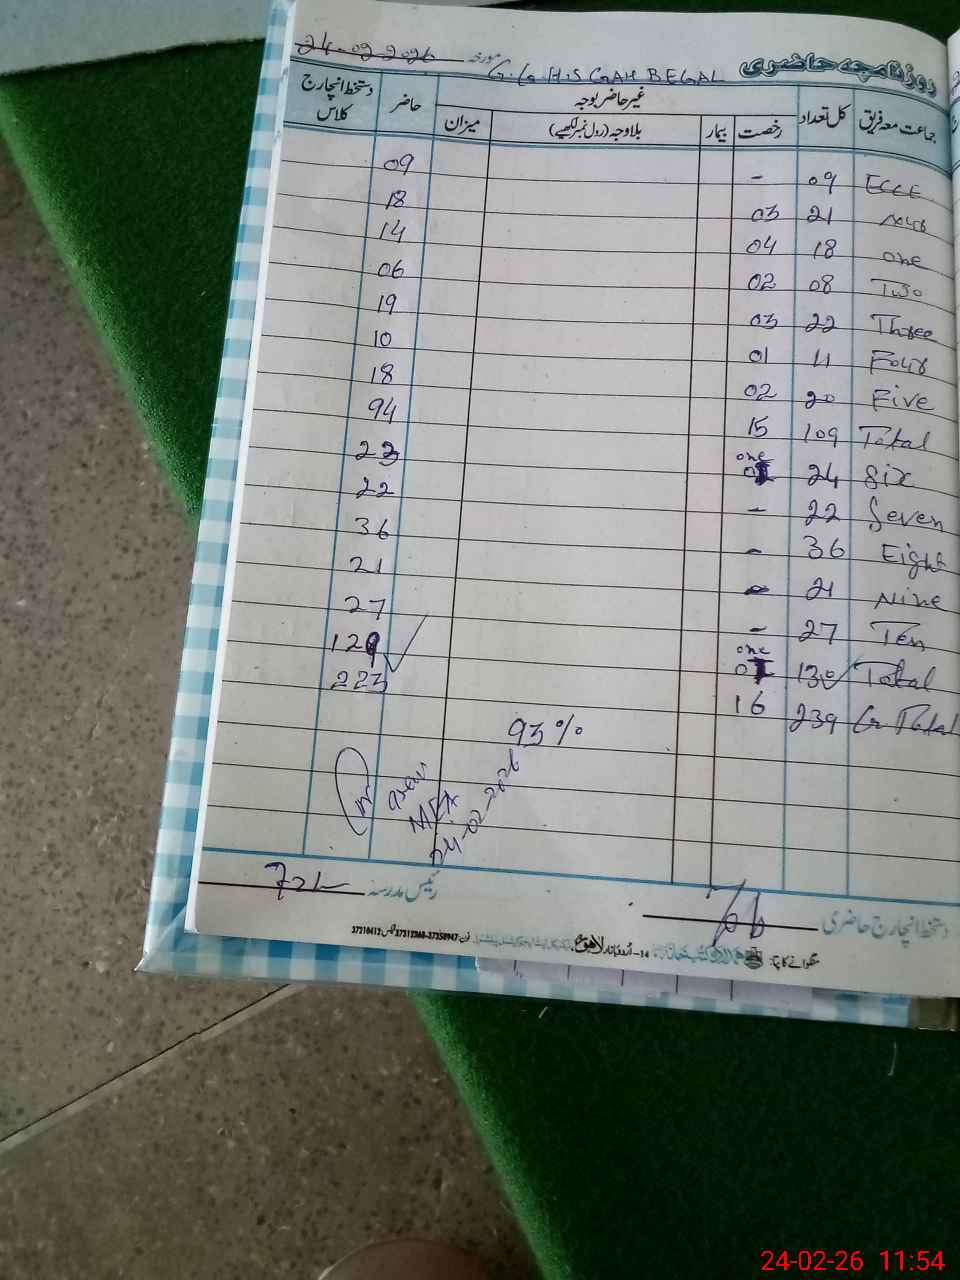 روزنامچہ حاضری G.G.H.S GAH BEGAL مورخہ 24-02-2026
جماعت معہ فریق کل تعداد غیر حاضر بوجہ حاضر دستخط انچارج کلاس
رخصت بیمار بلاوجہ (رول نمبر لکھیے) میزان
ECCE 09 - 09
21 03 18
one 18 04 14
Two 08 02 06
Three 22 03 19
Four 11 01 10
Five 20 02 18
Total 109 15 94
Six 24 one 01 23
Seven 22 - 22
Eight 36 - 36
Nine 21 - 21
Ten 27 - 27
Total 130 one 01 129
G Total 239 16 223
93%
MEA
24-02-2026
دستخط انچارج حاضری رئیس مدرسہ
منگوانے کا پتہ: 14-اردو بازار لاہور
24-02-26 11:54